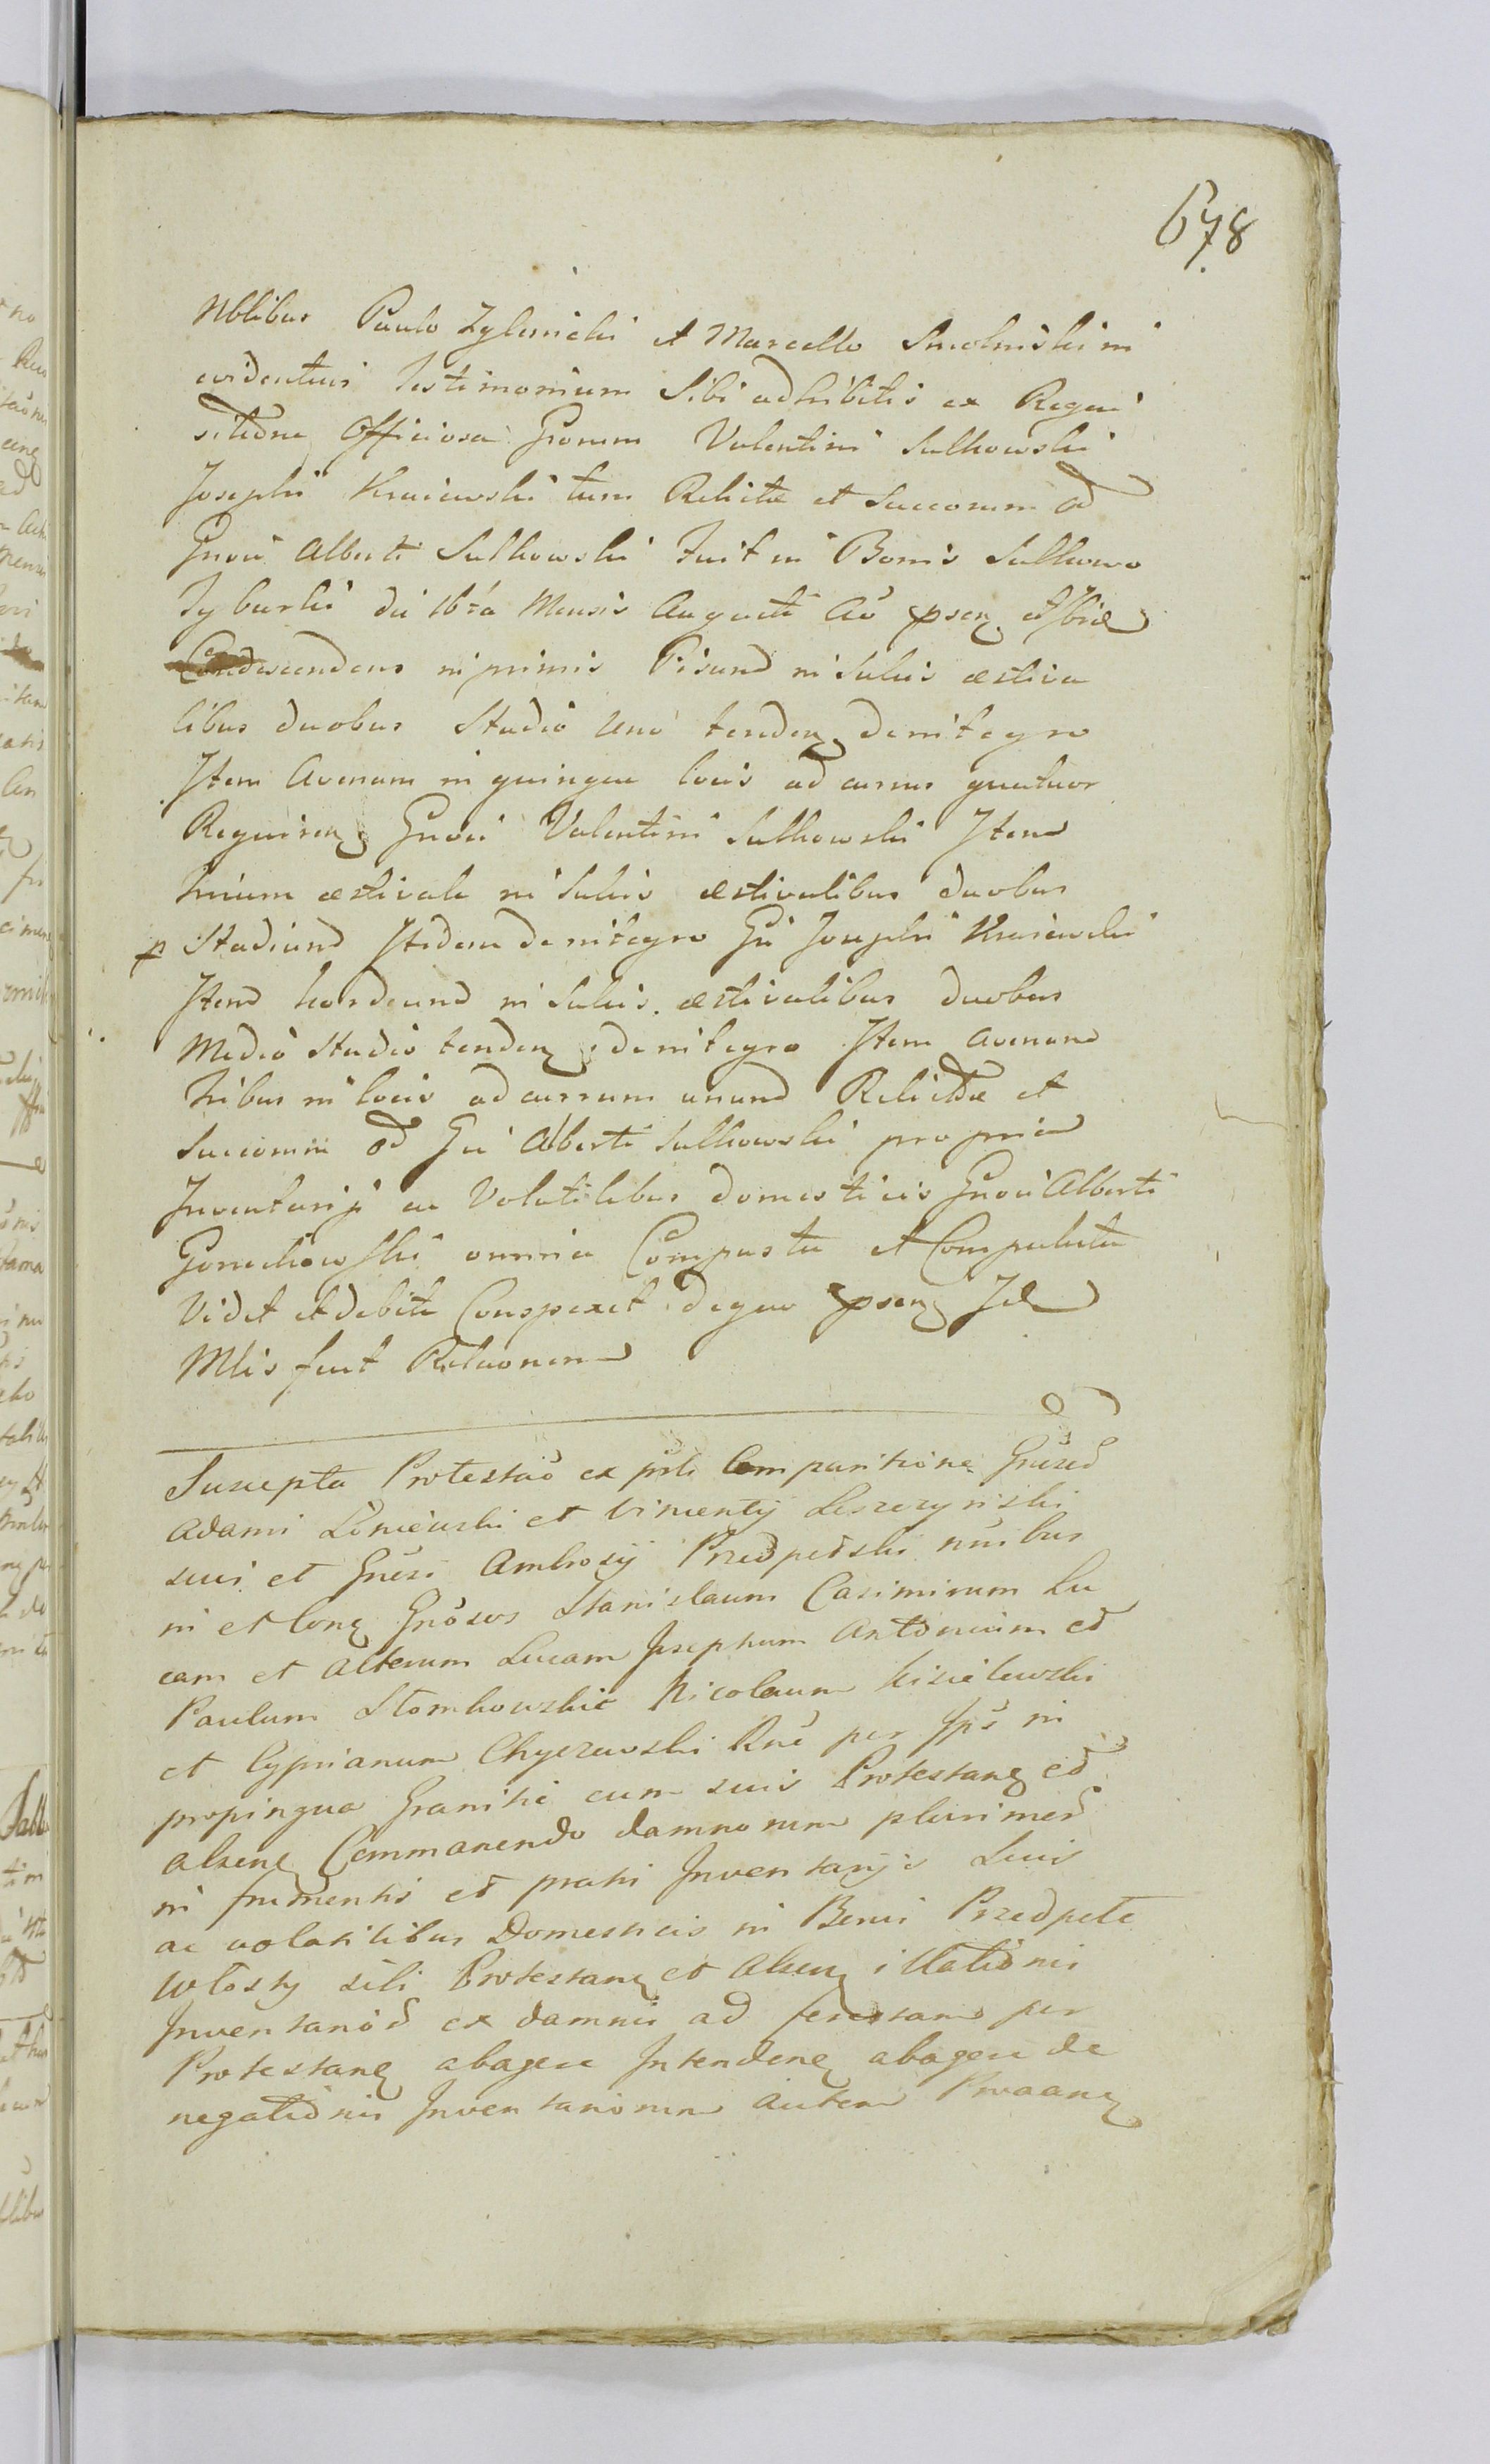 678
Nblibus Paulo Zylinski et Marcello Smolinski in
evidentius Testimonium Sibi adhibitis ex Requi
sitiōne Officiosa Gnorum Valentini Sulkowski
Josephi Kraiewski tum Relictæ et Succorum od
Gnosi Alberti Sulkowski Fuit in Bonis Sulkowo
Tyburki die 16ta Mensis Augusti Ao psen et Ibid
Condescendens in primis Pisum in Sulcis æstiva
libus duobus Stadio uno tenden denitegro
Item Avenam in quinque locis ad currus quatuor
Requiren Gnosi Valentini Sulkowski Item
æstivale in Sulcis æstivalibus duobus
Stadium Itidem denitegro Gsi Josephi Kraiewski
Item hordeum in Sulcis æstivalibus duobus
Medio Stadio tenden denitegro Item avenam
Tribus in locis ad currum unum Relictæ et
Succorum od Gsi Alberti Sulkowski propria
Inventarij ac Volatilibus domesticis Gnosi Alberti
omnia Compasta et Conculcata
Vidit et debite Conspexit de quo psen Id
Mlis fecit Relaonem
Suscepta Protestaō ex psli Comparitione Gnūsed
Adami et Vincentij Leszczynski
sui et Gnēsi Ambrosij Przedpełski nōibus
in et conq Gnōsos Stanislaum Casimirum Lu
cam et Alterum Lucam Josephum Antonium et
Paulum Stomkowskie Nicolaum Kisielewski
et Cyprianum Chyczewski Rnē per Ipš in
propinquo Graniti cum suis Protestanq et
alsenq Commanendo damnorum plurimed
in frumentis et pratis Inventarijs Suis
ac volatilibus Domesticis in Bonis Przedpełce
Włosty sibi Protestanq et Alsenq illatiōnis
Inventariōd ex damnis ad per
Protestanq abagere Intendenq abagere de
negatiōnis Inventariorum autem